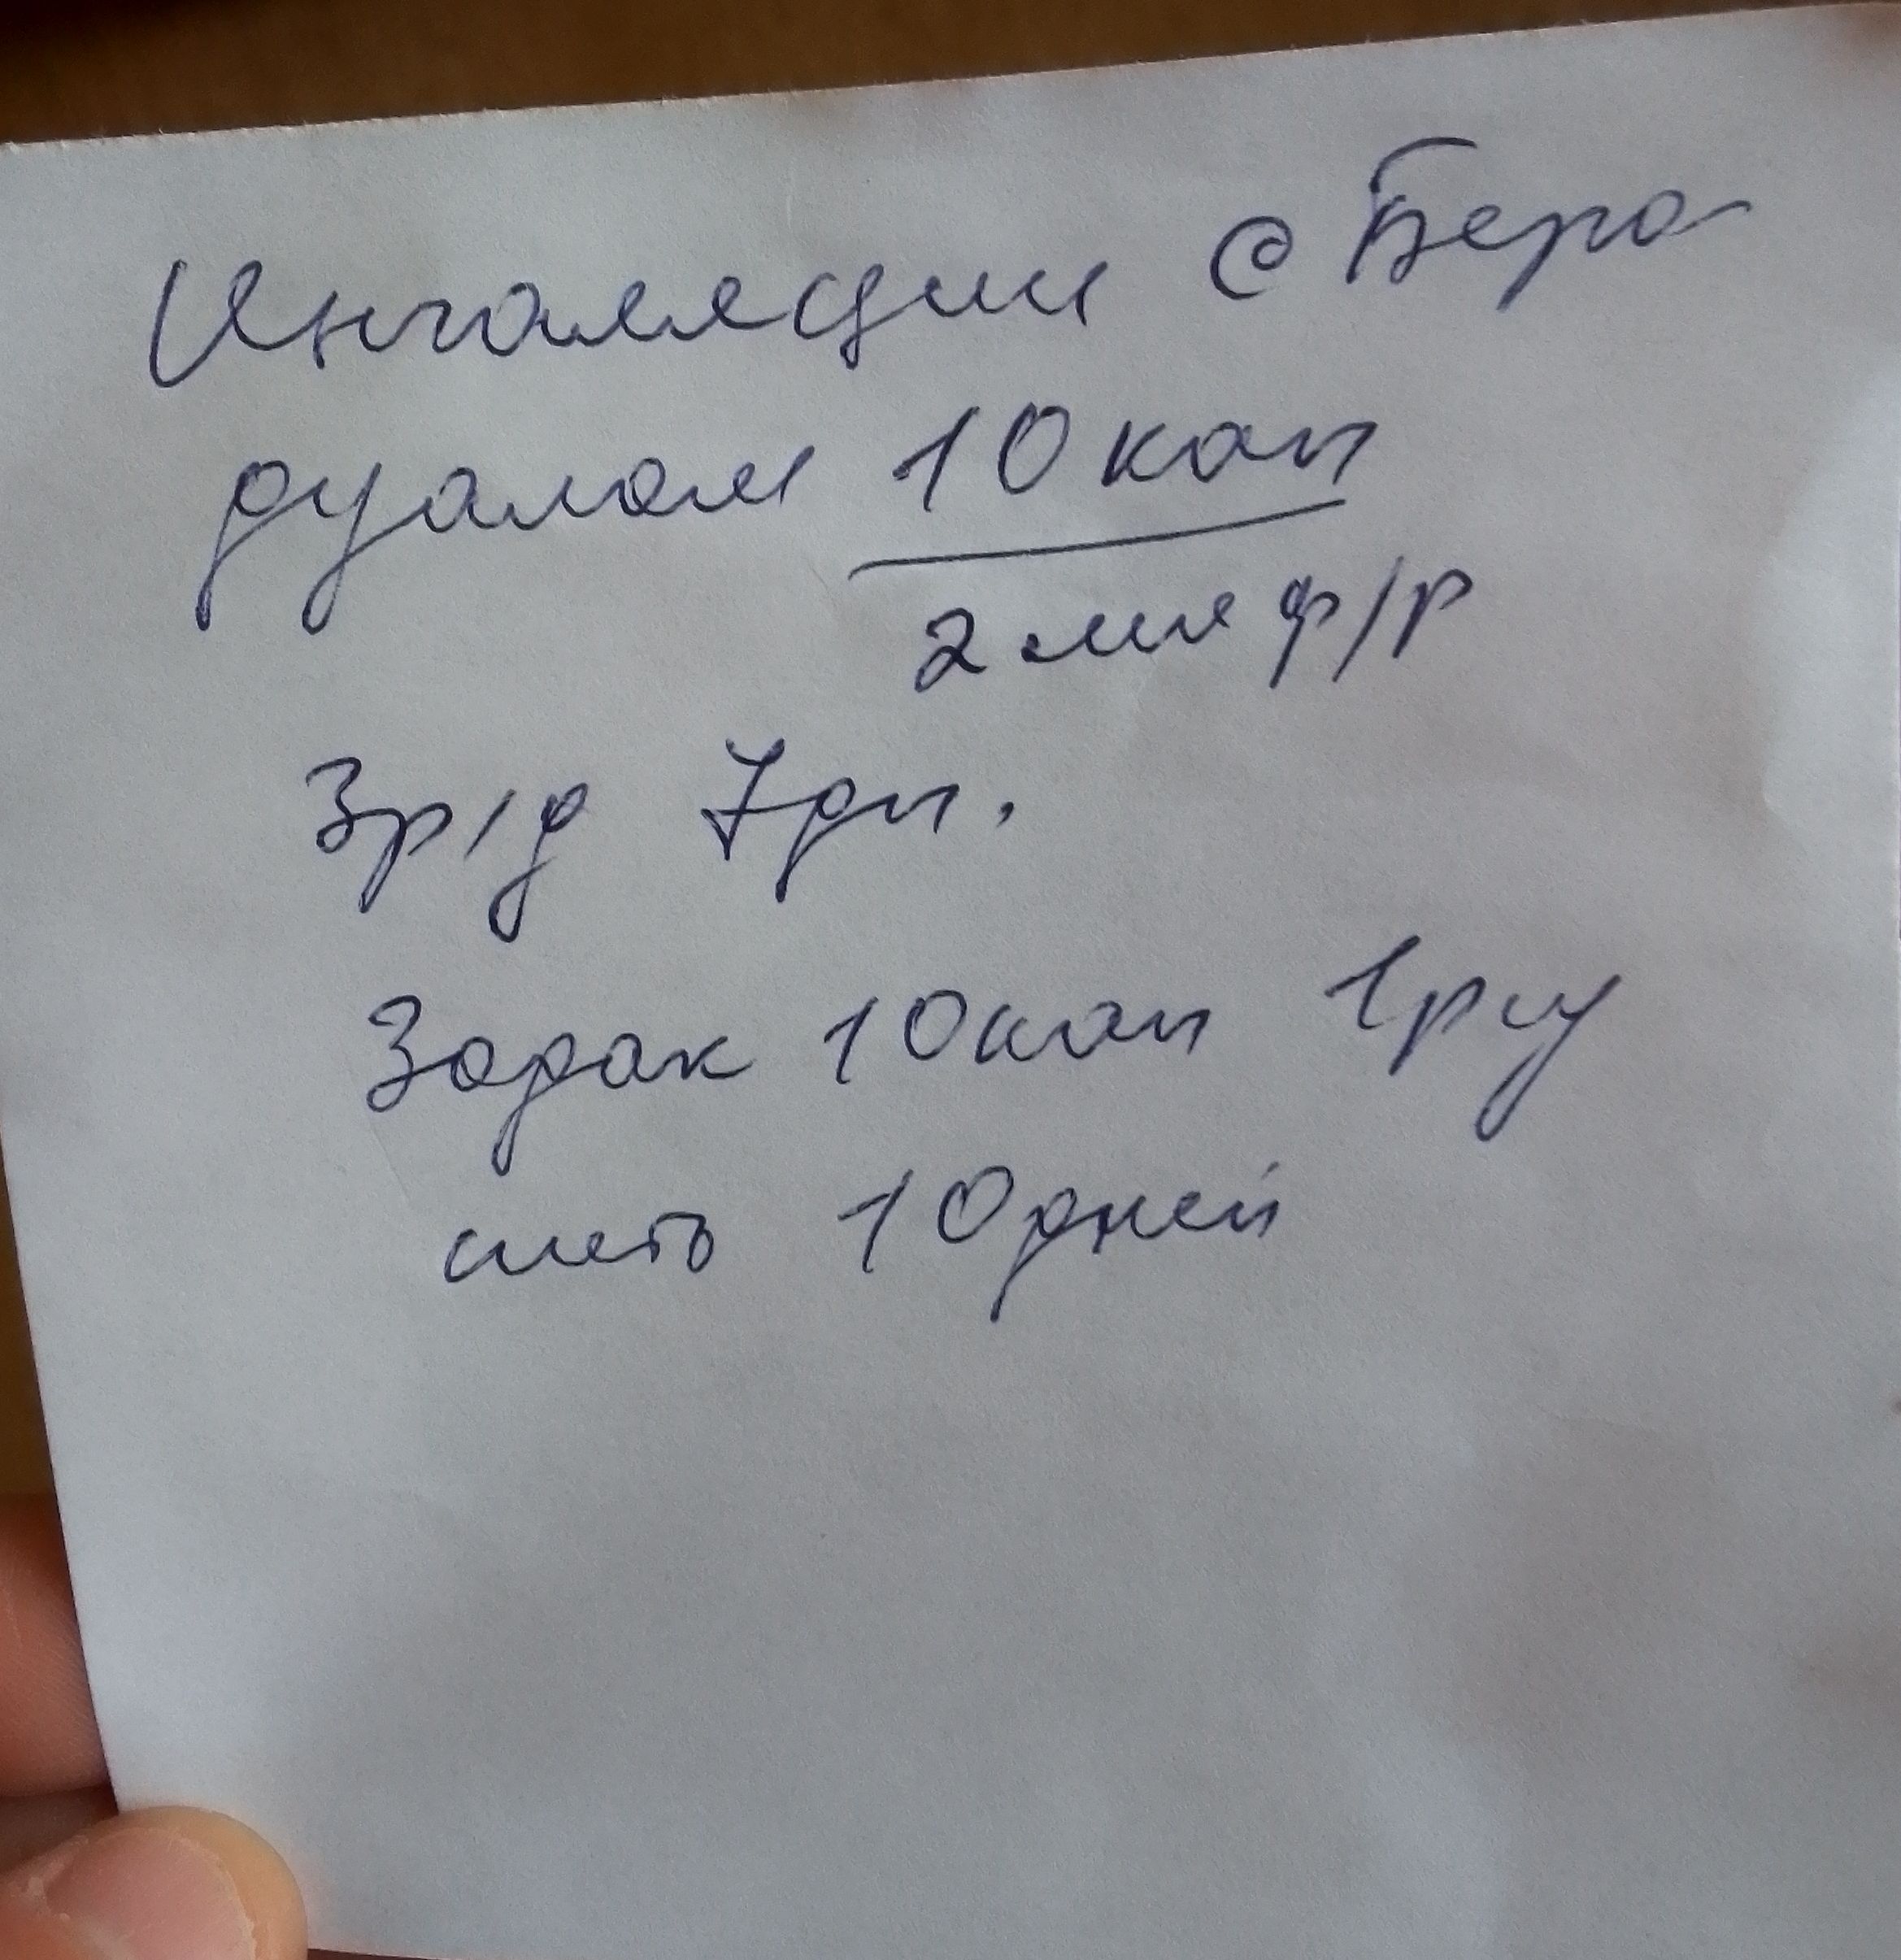 Ингаляции с Беро-
дуалом 10 кап
2 мл ф/р
3 р/д 7 дн.
Зодак 10 кап 1 р су
шеть 10 дней